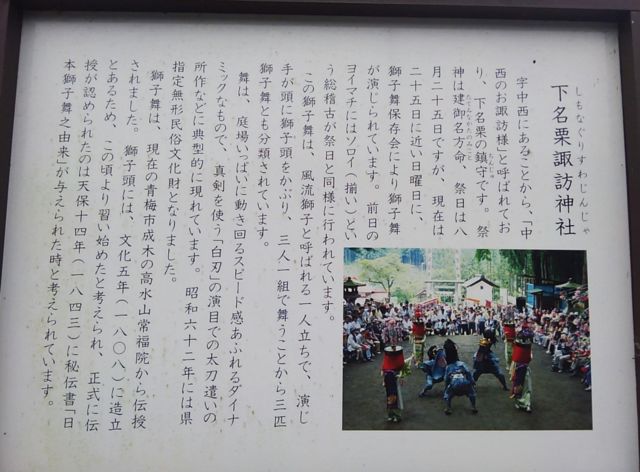 しもなぐりすわじんじゃ
下名栗諏訪神社
字中西にあることから、「中
西のお諏訪様」と呼ばれてお
り、下名栗の鎮守です。祭
神は建御名方命、祭日は八
月二十五日ですが、現在は
二十五日に近い日曜日に、
獅子舞保存会により獅子舞
が演じられています。前日の
ヨイマチにはソロイ（揃い）とい
う総稽古が祭日と同様に行われています。
この獅子舞は、風流獅子と呼ばれる一人立ちで、演じ
手が頭に獅子頭をかぶり、三人一組で舞うことから三匹
獅子舞とも分類されています。
舞は、庭場いっぱいに動き回るスピード感あふれるダイナ
ミックなもので、真剣を使う「白刃」の演目での太刀遣いの
所作などに典型的に現れています。昭和六十二年には県
指定無形民俗文化財となりました。
獅子舞は、現在の青梅市成木の高水山常福院から伝授
されました。獅子頭には、文化五年（一八〇八）に造立
とあるため、この頃より習い始めたと考えられ、正式に伝
授が認められたのは天保十四年（一八四三）に秘伝書「日
本獅子舞之由来」が与えられた時と考えられています。